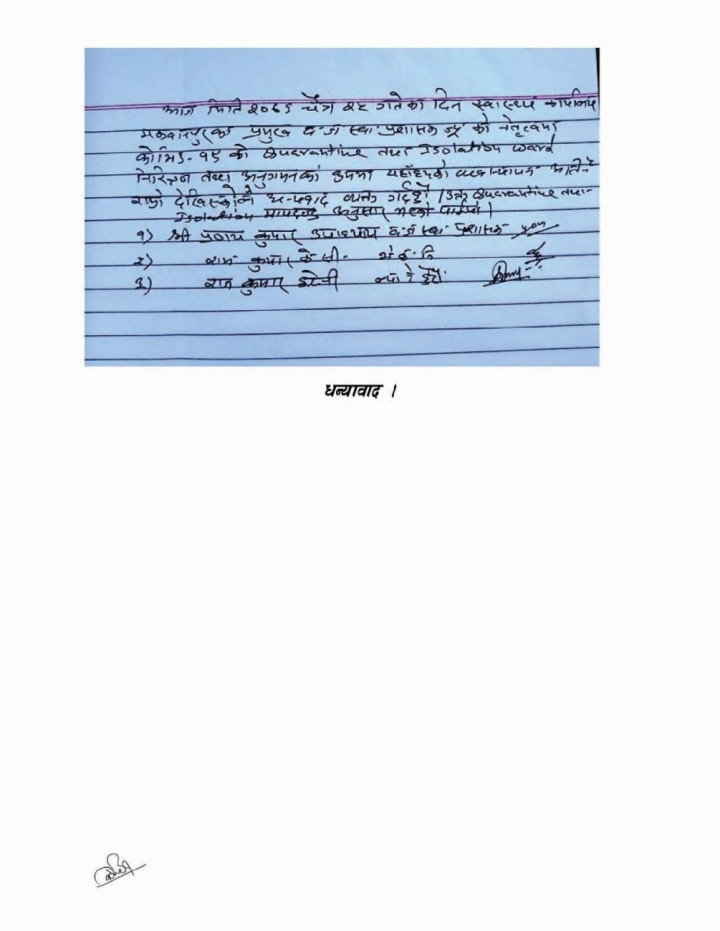 आज मिति २०७६ चैत्र २५ गतेका दिन स्वास्थ्य कार्यालय
मकवानपुरका प्रमुख व.ज.स्वा.प्रशासक ज्यू को नेतृत्वमा
कोभिड-१९ को Quarantine तथा Isolation ward
निरिक्षण तथा अनुगमनको क्रममा यहाँहरुको व्यवस्थापन अति नै
राम्रो देखिएकोले धन्यवाद व्यक्त गर्दछौं । उक्त Quarantine तथा
Isolation मापदण्ड अनुसार भएको पाईयो ।
१) श्री प्रताप कुमार उपाध्याय व.ज.स्वा.प्रशासक
२) राम कुमार के.सी.
३) राज कुमार
धन्यावाद ।